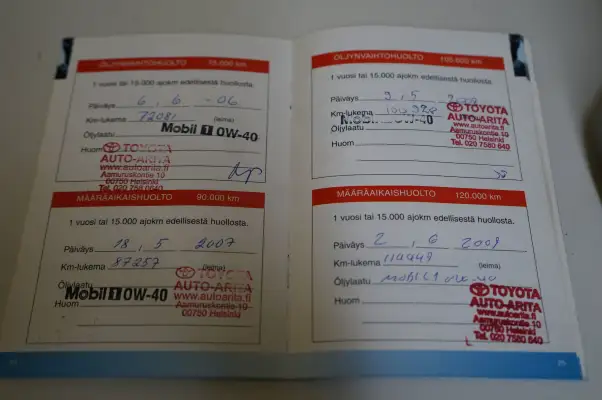 ÖLJYNVAIHTOHUOLTO 75.000 km
1 vuosi tai 15.000 ajokm edellisestä huollosta.
Päiväys 6. 6 -06
Km-lukema 72081 (leima)
Öljylaatu Mobil 1 0W-40
Huom
TOYOTA
AUTO-ARITA
www.autoarita.fi
Aamuruskontie 10
00750 Helsinki
Tel. 020 758 0640
MÄÄRÄAIKAISHUOLTO 90.000 km
1 vuosi tai 15.000 ajokm edellisestä huollosta.
Päiväys 18. 5 2007
Km-lukema 87257 (leima)
Öljylaatu
Mobil 1 0W-40
Huom
TOYOTA
AUTO-ARITA
www.autoarita.fi
Aamuruskontie 10
00750 Helsinki
ÖLJYNVAIHTOHUOLTO 105.000 km
1 vuosi tai 15.000 ajokm edellisestä huollosta.
Päiväys 5
Km-lukema
Öljylaatu Mobil 1 0W-40
Huom
TOYOTA
AUTO-ARITA
www.autoarita.fi
Aamuruskontie 10
00750 Helsinki
Tel. 020 7580 640
MÄÄRÄAIKAISHUOLTO 120.000 km
1 vuosi tai 15.000 ajokm edellisestä huollosta.
Päiväys 2. 6 2009
Km-lukema 114449 (leima)
Öljylaatu
Huom
TOYOTA
AUTO-ARITA
www.autoarita.fi
Aamuruskontie 10
00750 Helsinki
Tel. 020 7580 640